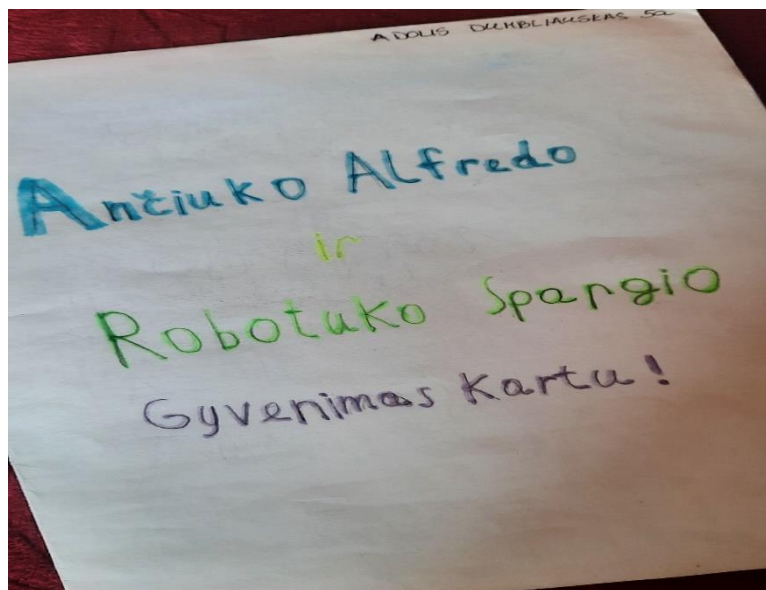 ADOLIS DUMBLIAUSKAS 5a
Ančiuko Alfredo
ir
Robotuko Spargio
Gyvenimas Kartu!